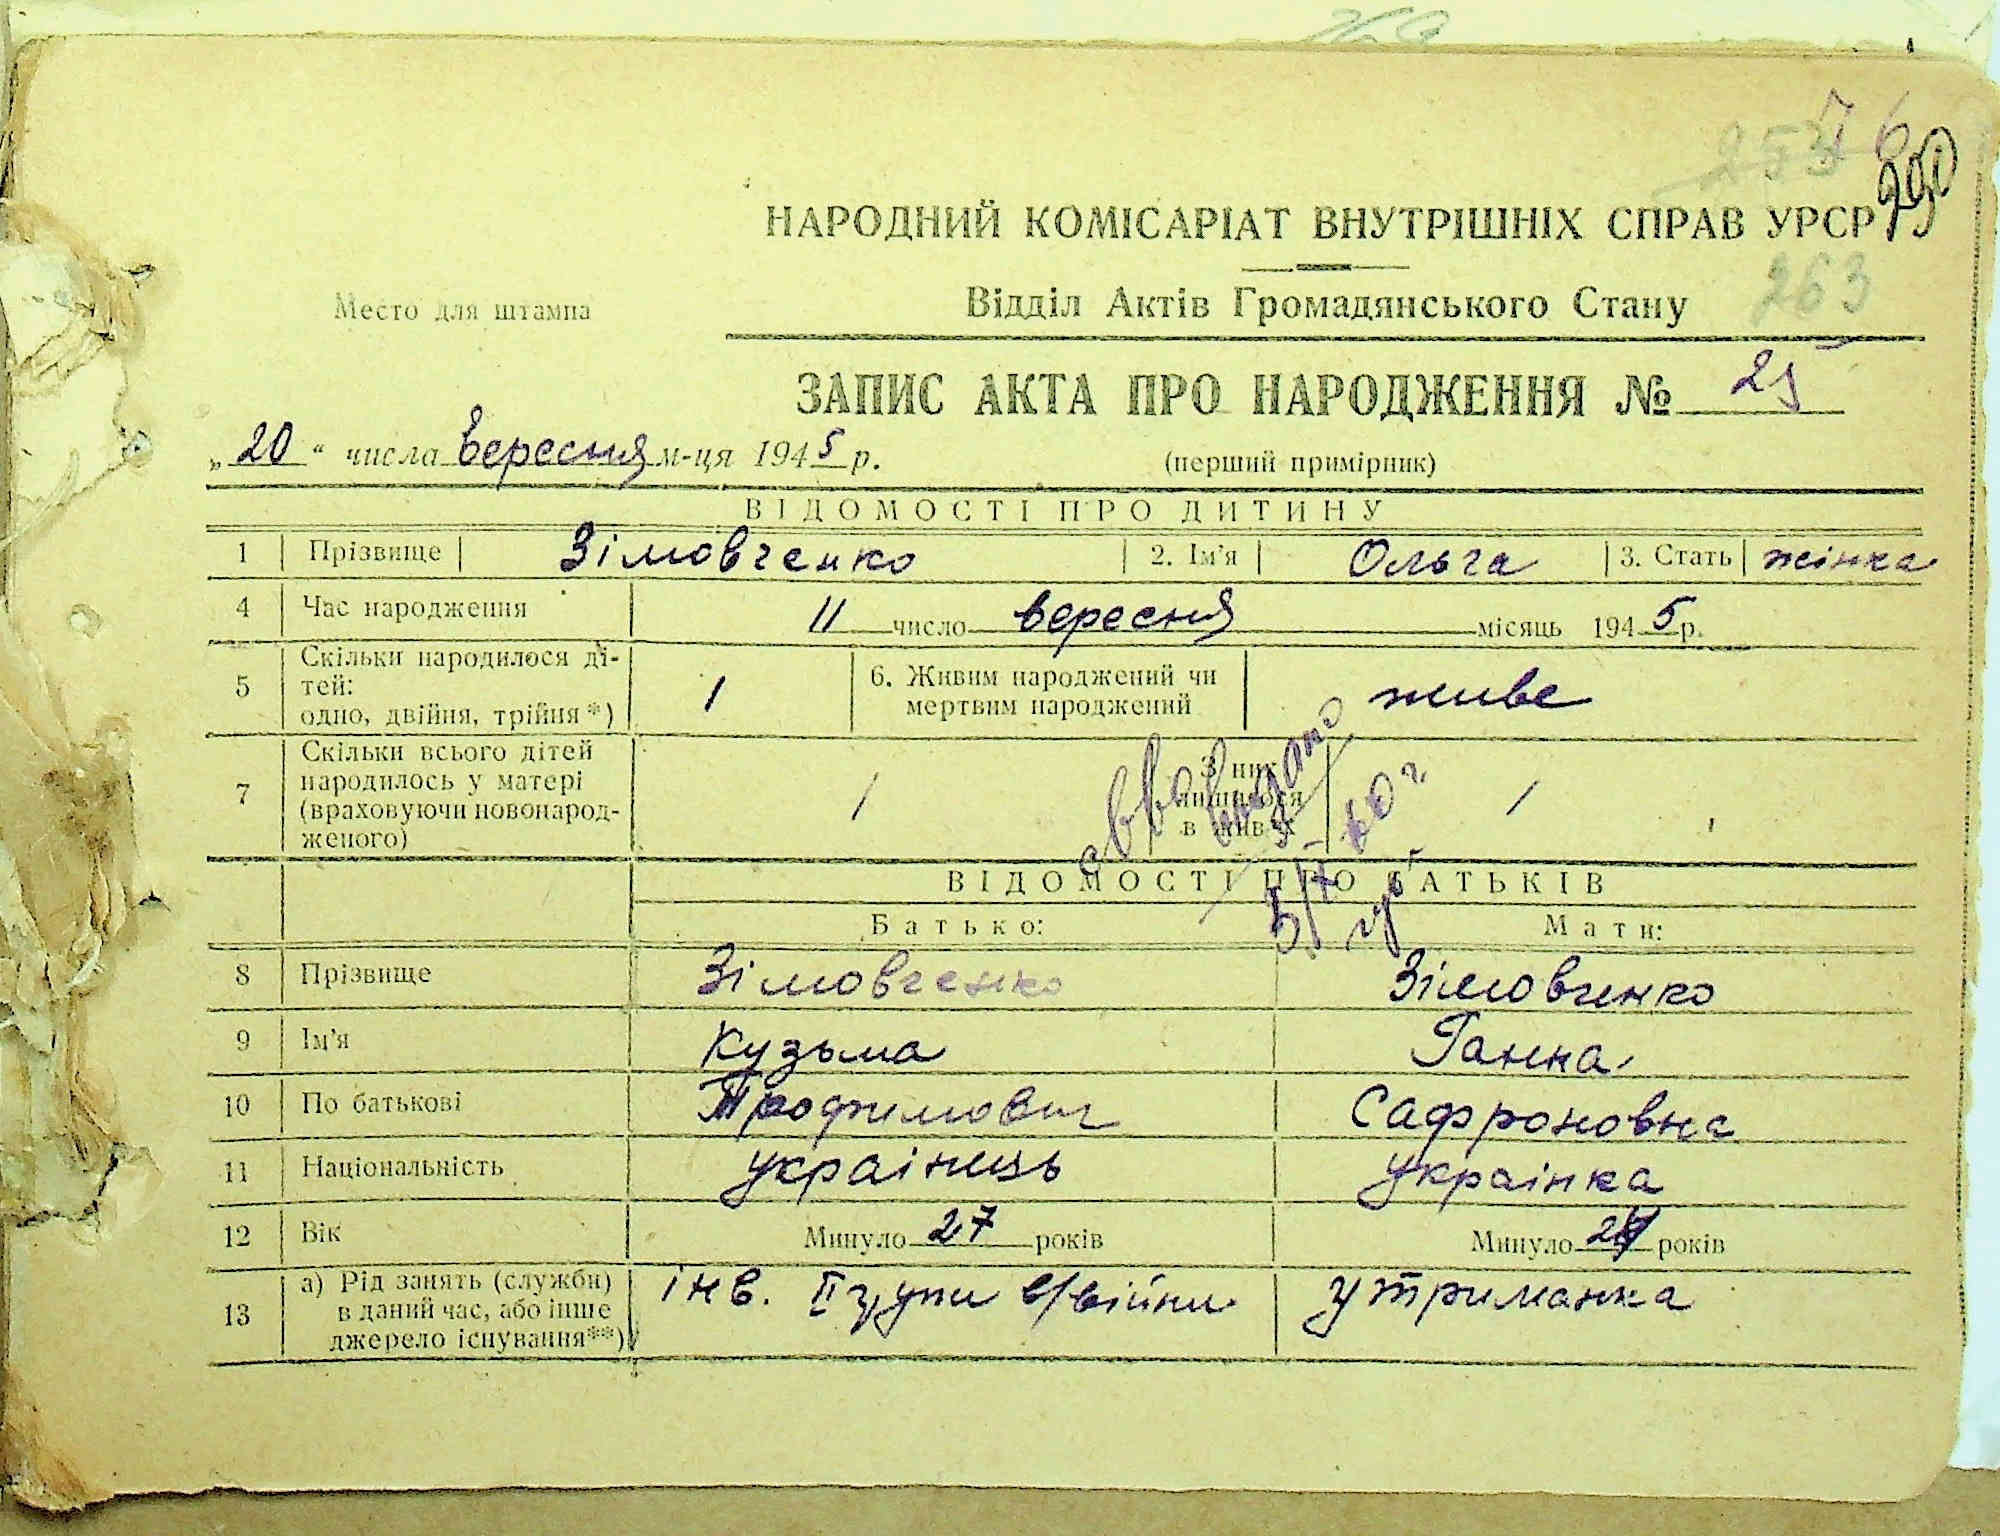 76
253
290
НАРОДНИЙ КОМІСАРІАТ ВНУТРІШНІХ СПРАВ УРСР
263
Место для штампа
Відділ Актів Громадянського Стану
ЗАПИС АКТА ПРО НАРОДЖЕННЯ № 25
„20“ числа вересня м-ця 1945 р.
(перший примірник)
ВІДОМОСТІ ПРО ДИТИНУ
1 Прізвище Зімовченко 2. Ім'я Ольга 3. Стать жінка
4 Час народження 11 число вересня місяць 1945 р.
5 Скільки народилося ді-
тей:
одно, двійня, трійня*) 1
6. Живим народжений чи
мертвим народжений живе
7 Скільки всього дітей
народилось у матері
(враховуючи новонарод-
женого) 1
З них
лишилося
в живих 1
видано
ВІДОМОСТІ ПРО БАТЬКІВ
Батько: Мати:
8 Прізвище Зімовченко Зімовченко
9 Ім'я Кузьма Ганна
10 По батькові Трофимович Сафроновна
11 Національність українець українка
12 Вік Минуло 27 років Минуло років
13 а) Рід занять (служби)
в даний час, або інше
джерело існування**) інв. II групи в/війни утриманка